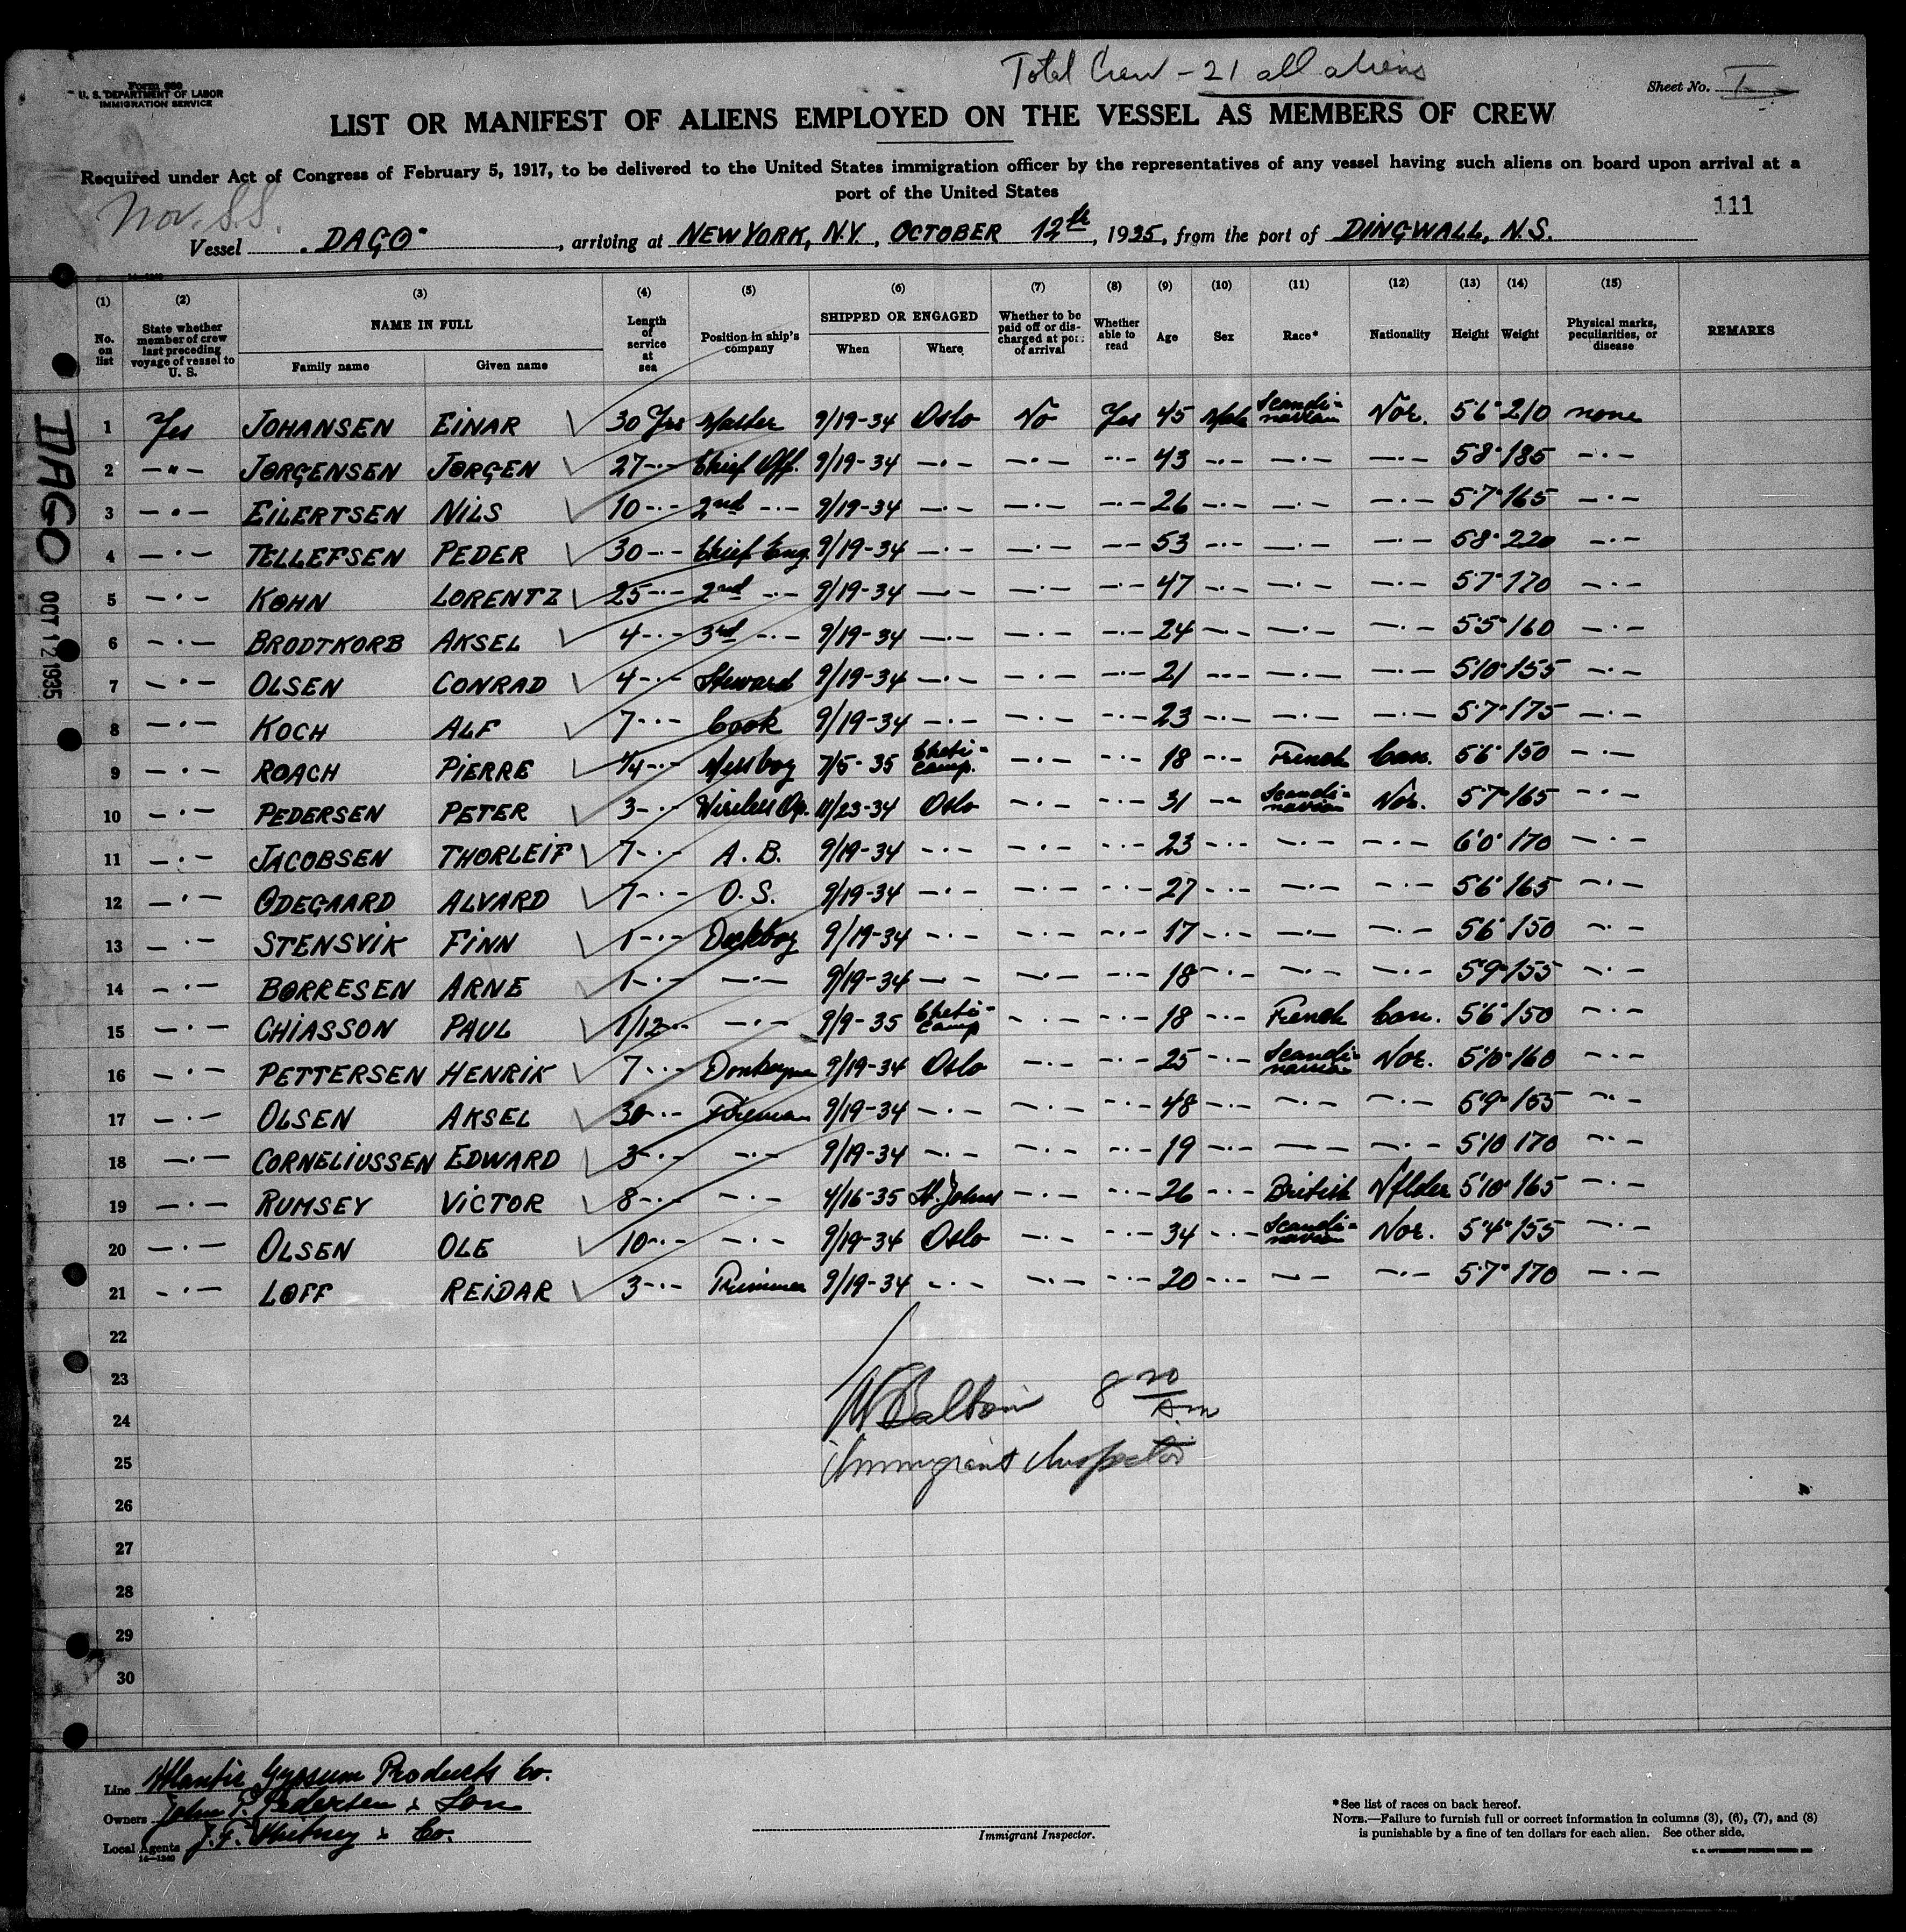 Total Crew - 21 all aliens
Form 680
U. S. DEPARTMENT OF LABOR
IMMIGRATION SERVICE
Sheet No. I
LIST OR MANIFEST OF ALIENS EMPLOYED ON THE VESSEL AS MEMBERS OF CREW
Required under Act of Congress of February 5, 1917, to be delivered to the United States immigration officer by the representatives of any vessel having such aliens on board upon arrival at a
port of the United States
111
Nor. S.S.
Vessel "DAGO", arriving at NEW YORK, N.Y., OCTOBER 12th, 1935, from the port of DINGWALL, N.S.
(1) (2) (3) (4) (5) (6) (7) (8) (9) (10) (11) (12) (13) (14) (15)
No. on list | State whether member of crew last preceding voyage of vessel to U. S. | NAME IN FULL | Family name | Given name | Length of service at sea | Position in ship's company | SHIPPED OR ENGAGED | When | Where | Whether to be paid off or discharged at port of arrival | Whether able to read | Age | Sex | Race* | Nationality | Height | Weight | Physical marks, peculiarities, or disease | REMARKS
1 Yes JOHANSEN EINAR √ 30 Yrs Master 9/19-34 Oslo No Yes 45 Male Scandi=navian Nor. 5'6" 210 none
2 -"- JØRGENSEN JØRGEN √ 27 -·- Chief Off. 9/19-34 -·- -·- -·- 43 -·- -·- -·- 5'8" 185 -·-
3 -·- EILERTSEN NILS √ 10 -·- 2nd -·- 9/19-34 -·- -·- -·- 26 -·- -·- -·- 5'7" 165 -·-
4 -·- TELLEFSEN PEDER √ 30 -·- Chief Eng. 9/19-34 -·- -·- -·- 53 -·- -·- -·- 5'8" 220 -·-
5 -·- KØHN LORENTZ √ 25 -·- 2nd -·- 9/19-34 -·- -·- -·- 47 -·- -·- -·- 5'7" 170 -·-
6 -·- BRODTKORB AKSEL √ 4 -·- 3rd -·- 9/19-34 -·- -·- -·- 24 -·- -·- -·- 5'5" 160 -·-
7 -·- OLSEN CONRAD √ 4 -·- Steward 9/19-34 -·- -·- -·- 21 -·- -·- -·- 5'10" 155 -·-
8 -·- KOCH ALF √ 7 -·- Cook 9/19-34 -·- -·- -·- 23 -·- -·- -·- 5'7" 175 -·-
9 -·- ROACH PIERRE √ 1/4 -·- Messboy 7/5-35 Cheti=camp. -·- -·- 18 -·- French Can. 5'6" 150 -·-
10 -·- PEDERSEN PETER √ 3 -·- Wireless Op. 11/23-34 Oslo -·- -·- 31 -·- Scandi=navian Nor. 5'7" 165 -·-
11 -·- JACOBSEN THORLEIF √ 7 -·- A. B. 9/19-34 -·- -·- -·- 23 -·- -·- -·- 6'0" 170 -·-
12 -·- ØDEGAARD ALVARD √ 7 -·- O. S. 9/19-34 -·- -·- -·- 27 -·- -·- -·- 5'6" 165 -·-
13 -·- STENSVIK FINN √ 1 -·- Deckboy 9/19-34 -·- -·- -·- 17 -·- -·- -·- 5'6" 150 -·-
14 -·- BØRRESEN ARNE √ 1 -·- -·- 9/19-34 -·- -·- -·- 18 -·- -·- -·- 5'9" 155 -·-
15 -·- CHIASSON PAUL √ 1/12 -·- -·- 9/9-35 Cheti=camp -·- -·- 18 -·- French Can. 5'6" 150 -·-
16 -·- PETTERSEN HENRIK √ 7 -·- Donkeyman 9/19-34 Oslo -·- -·- 25 -·- Scandi=navian Nor. 5'10" 160 -·-
17 -·- OLSEN AKSEL √ 30 -·- Fireman 9/19-34 -·- -·- -·- 48 -·- -·- -·- 5'9" 155 -·-
18 -·- CORNELIUSSEN EDWARD √ 3 -·- -·- 9/19-34 -·- -·- -·- 19 -·- -·- -·- 5'10 170 -·-
19 -·- RUMSEY VICTOR √ 8 -·- -·- 4/16-35 St. Johns -·- -·- 26 -·- British Nflder 5'10" 165 -·-
20 -·- OLSEN OLE √ 10 -·- -·- 9/19-34 Oslo -·- -·- 34 -·- Scandi=navian Nor. 5'4" 155 -·-
21 -·- LØFF REIDAR √ 3 -·- Trimmer 9/19-34 -·- -·- -·- 20 -·- -·- -·- 5'7" 170 -·-
22
23
24
25
26
27
28
29
30
8 20 Am
Immigrant Inspector
DAGO OCT 12 1935
Line Atlantic Gypsum Products Co.
Owners John P. Pedersen & Son
Local Agents J. F. Whitney & Co.
14—1240
Immigrant Inspector.
*See list of races on back hereof.
NOTE.—Failure to furnish full or correct information in columns (3), (6), (7), and (8)
is punishable by a fine of ten dollars for each alien. See other side.